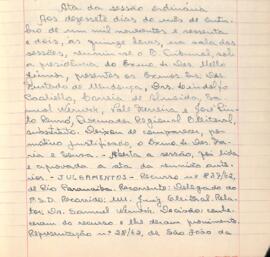 Ata da sessão ordinária
Aos dezessete dias do mês de outu-
bro de um mil novecentos e sessenta
e dois, às quinze horas, na sala das
sessões, reuniu-se o E. Tribunal, sob
a presidência do Exmo. Sr. Des. Mello
Júnior, presentes os Exmos. Srs. Des.
Furtado de Mendonça, Drs. Lindolfo
Coelho, Correia de Almeida, Sa-
muel Werneck, Vale Ferreira e José
Procurador Regional Eleitoral,
substituto. Deixou de comparecer, por
motivo justificado, o Exmo. Sr. Des. Fa-
ria e Sousa. - Aberta a sessão, foi lida
e aprovada a ata da reunião ante-
rior. - JULGAMENTOS - Recurso nº 837/62,
de Rio Paranaíba. Recorrente: Delegado do
P.S.D. Recorrido: MM. Juiz Eleitoral. Rela-
tor: Dr. Samuel Werneck. Decisão: conhe-
ceram do recurso e lhe deram provimento.
Representação nº 28/62, de São João da